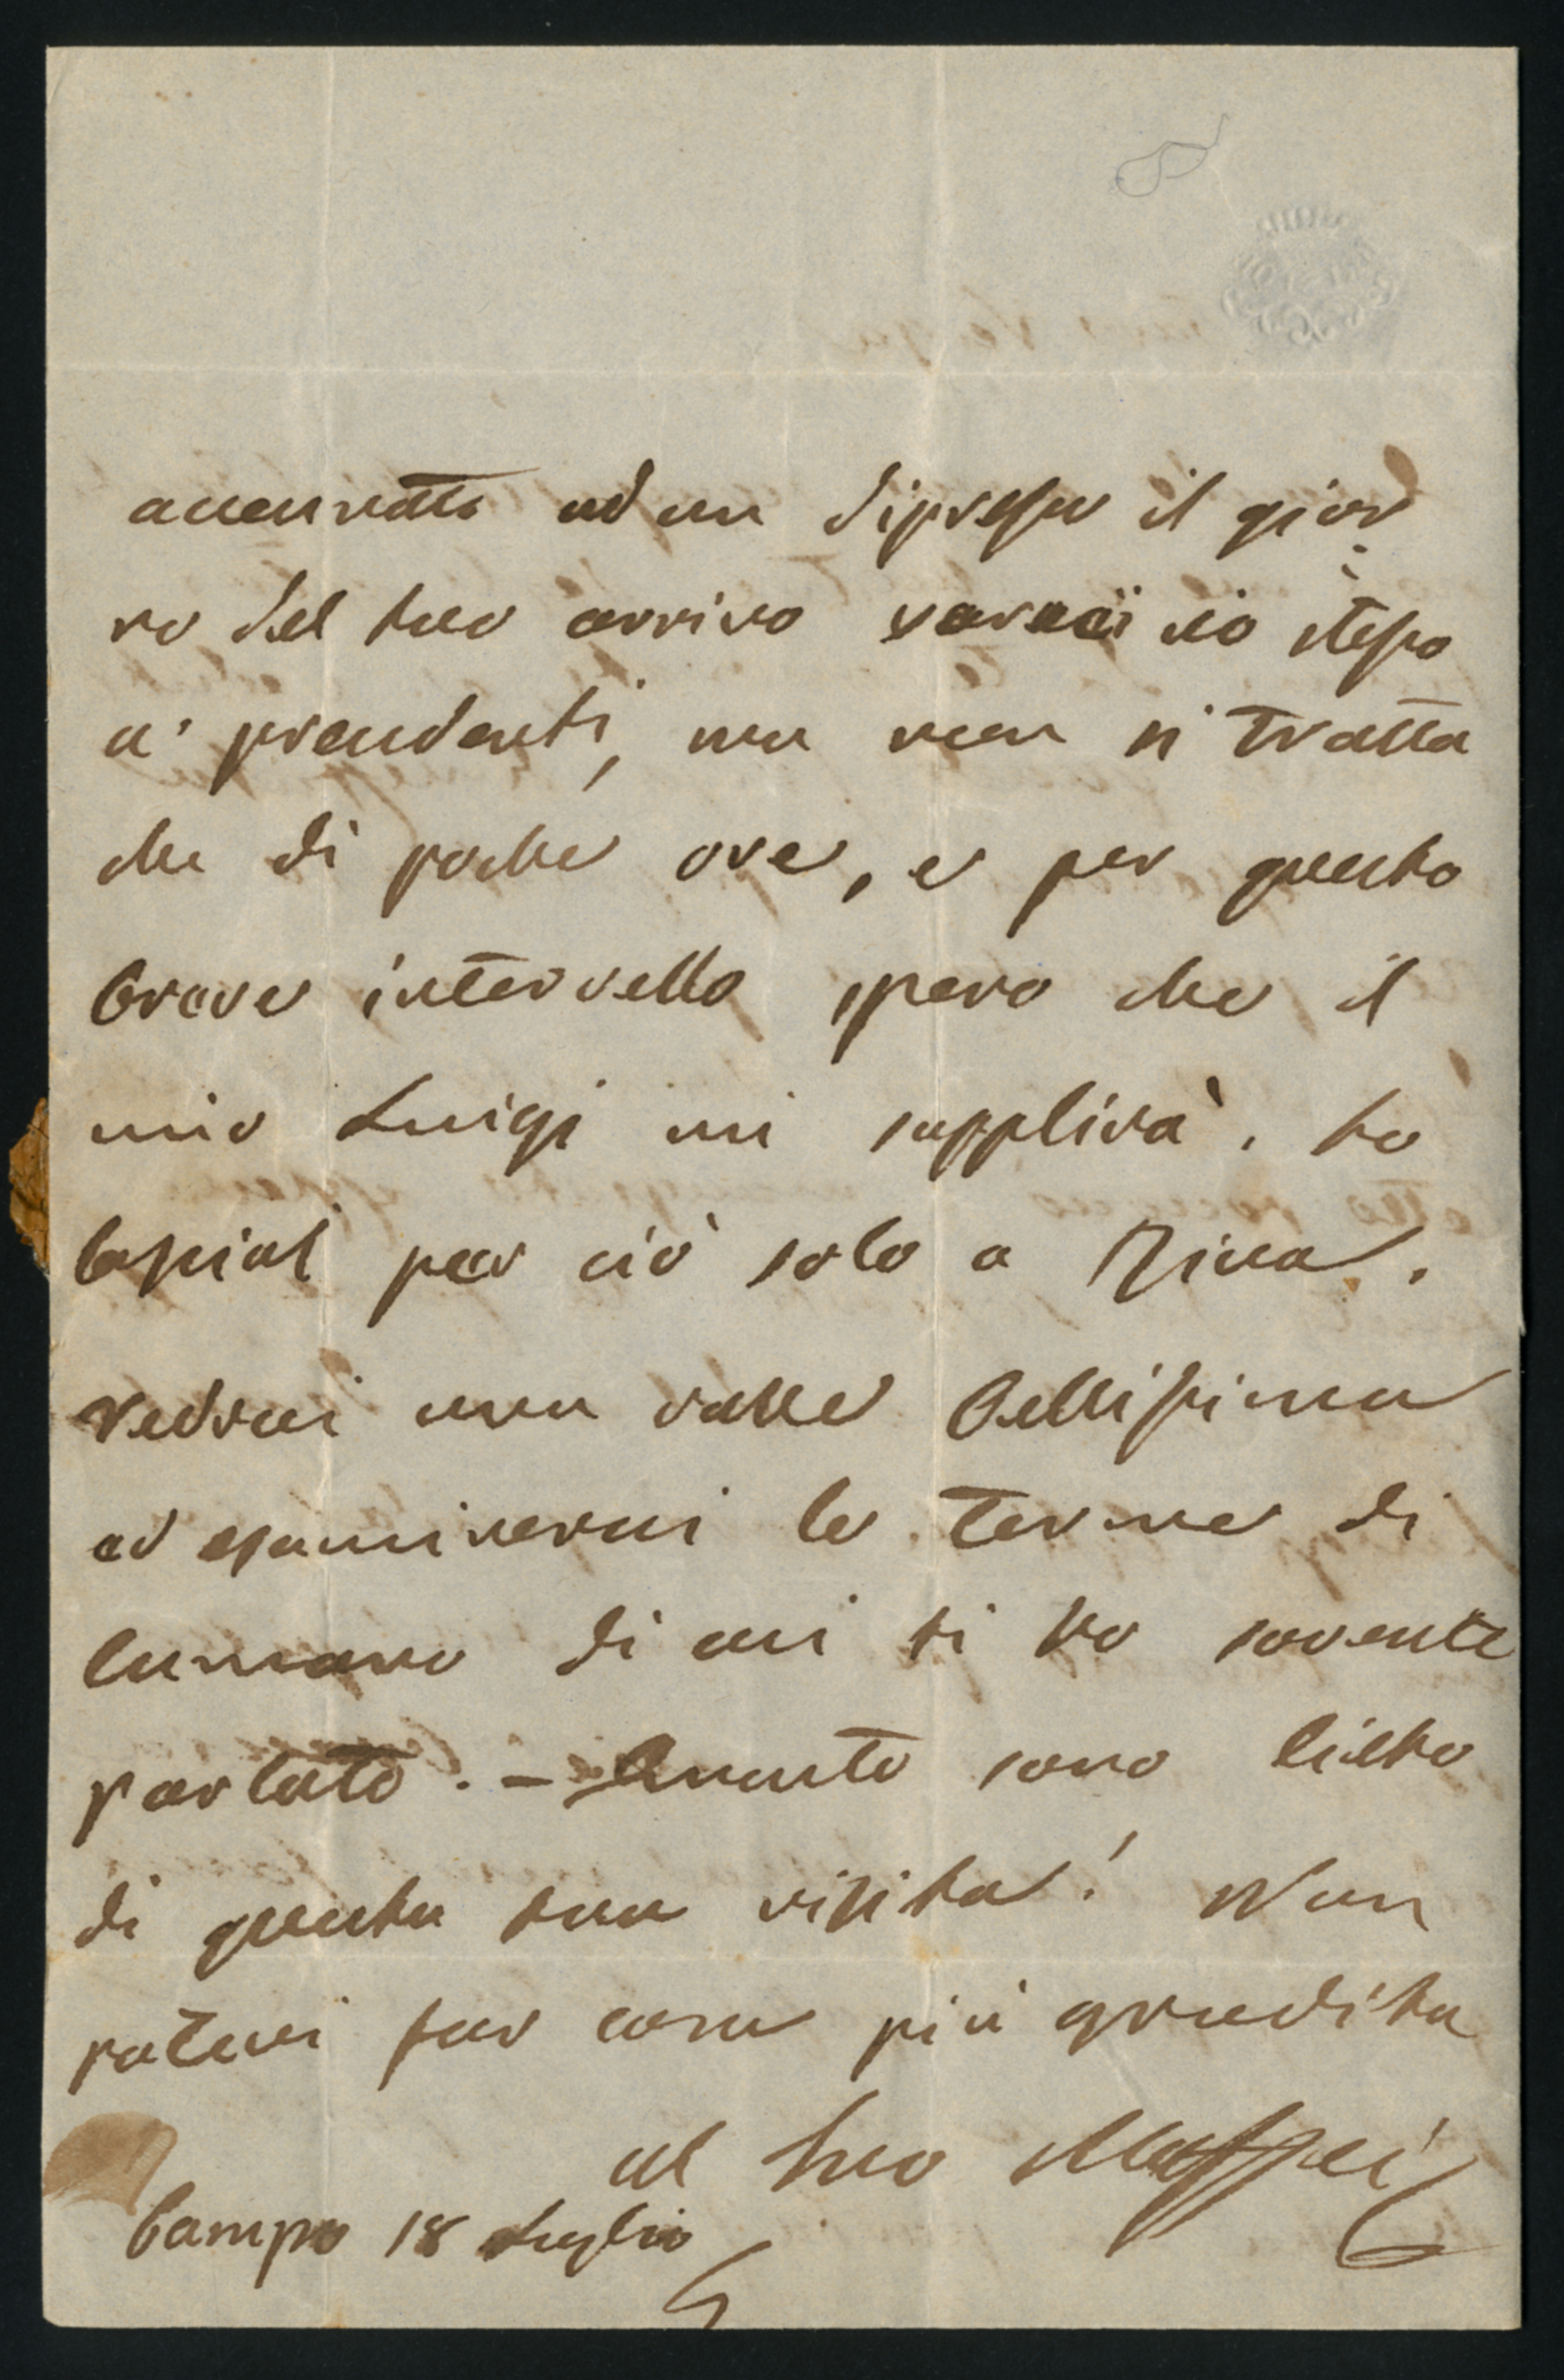 accennata ad un dipresso il gior
no del tuo arrivo verrei io stesso
a' prenderti, ma non si tratta
che di poche ore, e per questo
breve intervallo spero che il
mio Luigi mi supplirà. Lo
lasciai per ciò solo a Riva.
Vedrai una valle bellissima
ed esaminerai le terme di
Comano di cui ti ho sovente
parlato. — Quanto sono lieto
di questa tua visita! Non
potevi far cosa più gradita
al tuo Maffei
Campo 18 Luglio